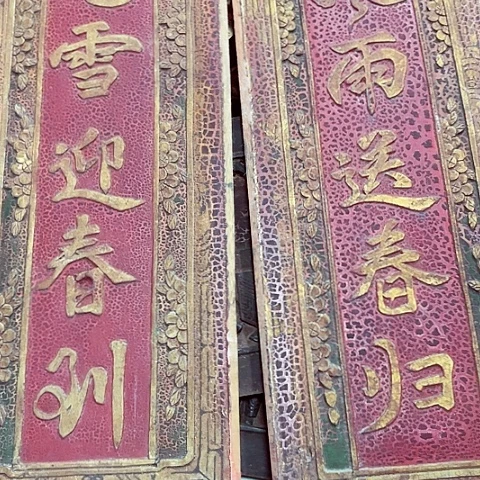 雨送春归
雪迎春到